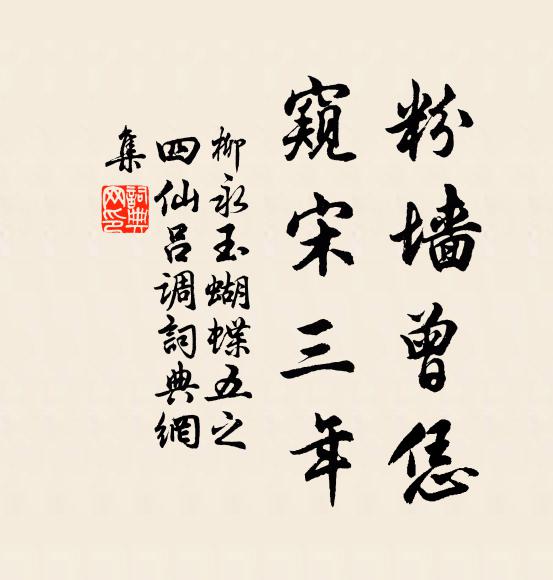 粉墻曾恁
窺宋三年
柳永玉蝴蝶五之
四仙呂調詞典網
集
詞典
网印